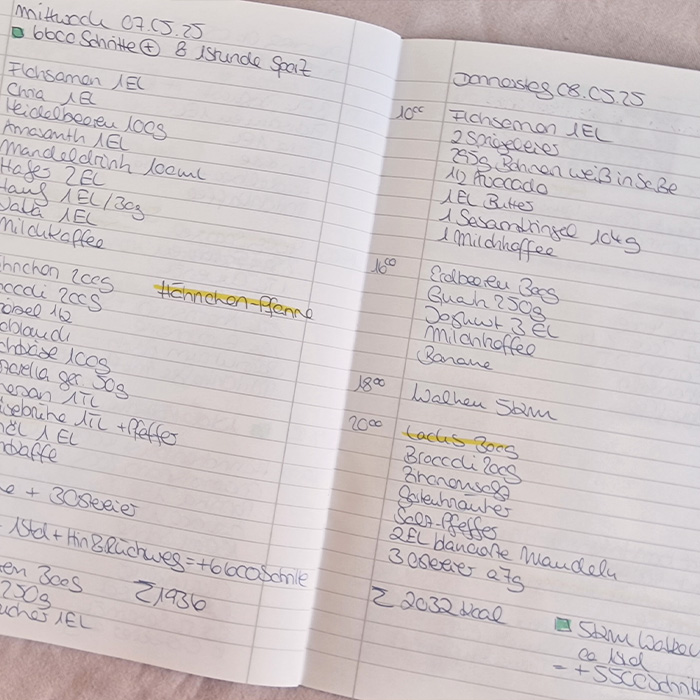 Mittwoch 07.05.25
6600 Schritte + & 1 Stunde Sport
Flohsamen 1EL
Chia 1EL
Heidelbeeren 100g
Amaranth 1EL
Mandeldrink 100ml
Hafer 2EL
Hanf 1EL/30g
1EL
Milchkaffee
hnchen 200g
Hähnchen-Pfanne
occoli 200g
iebel 1/2
oblauch
100g
arella ger. 50g
mesan 1TL
brühe 1TL + Pfeffer
öl 1EL
+ 3 Ostereier
1Std + Hin & Rückweg = + 6600 Schritte
300g
250g
Σ 1936
ucker 1EL
Donnerstag 08.05.25
10⁰⁰ Flohsamen 1EL
2 Spiegeleier
255g Bohnen weiß in Soße
1/2 Avocado
1EL Butter
1 Sesamkringel 104g
1 Milchkaffee
16⁰⁰ Erdbeeren 300g
Quark 250g
Joghurt 3EL
Milchkaffee
Banane
18⁰⁰ Walken 5km
20⁰⁰ Lachs 300g
Broccoli 200g
Zitronensaft
Salz-Pfeffer
2EL blanchierte Mandeln
3 Ostereier a7g
Σ 2032 kcal
5km Walken
ca 1Std
= + 5500 Schritte